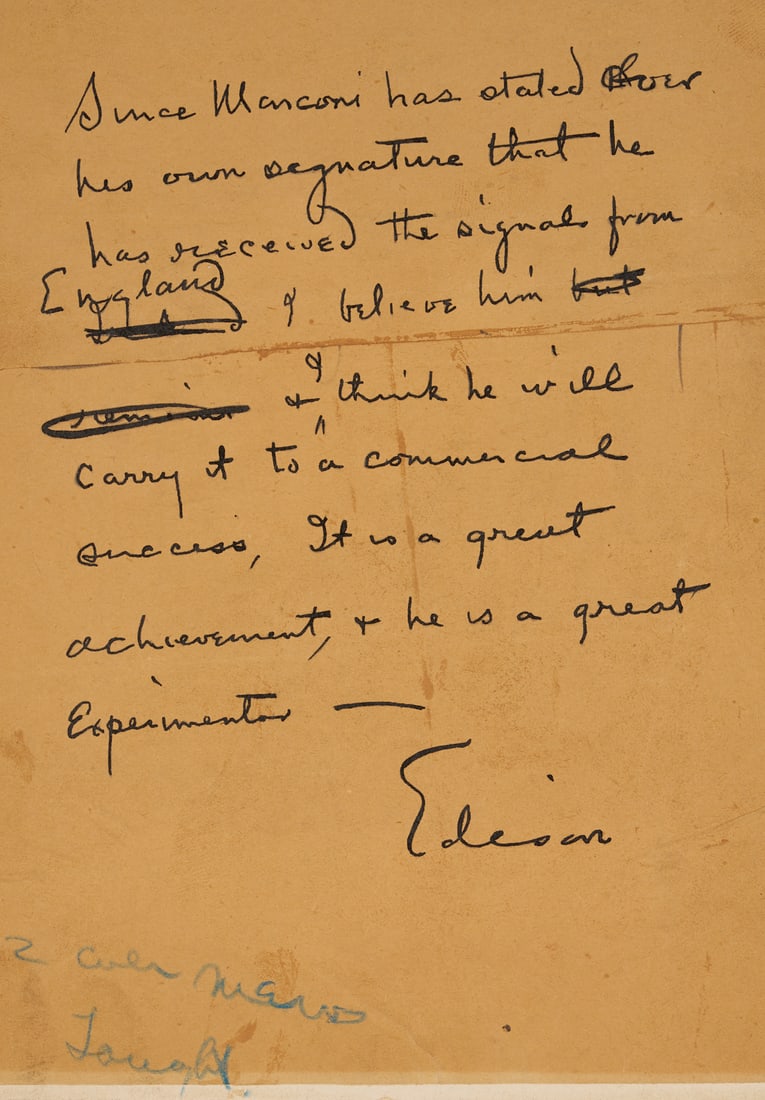 Since Marconi has stated over
his own segnature that he
has received the signals from
England I believe him but
& I think he will
carry it to a commercial
success, It is a great
achievement, & he is a great
Experimentor —
Edison
2